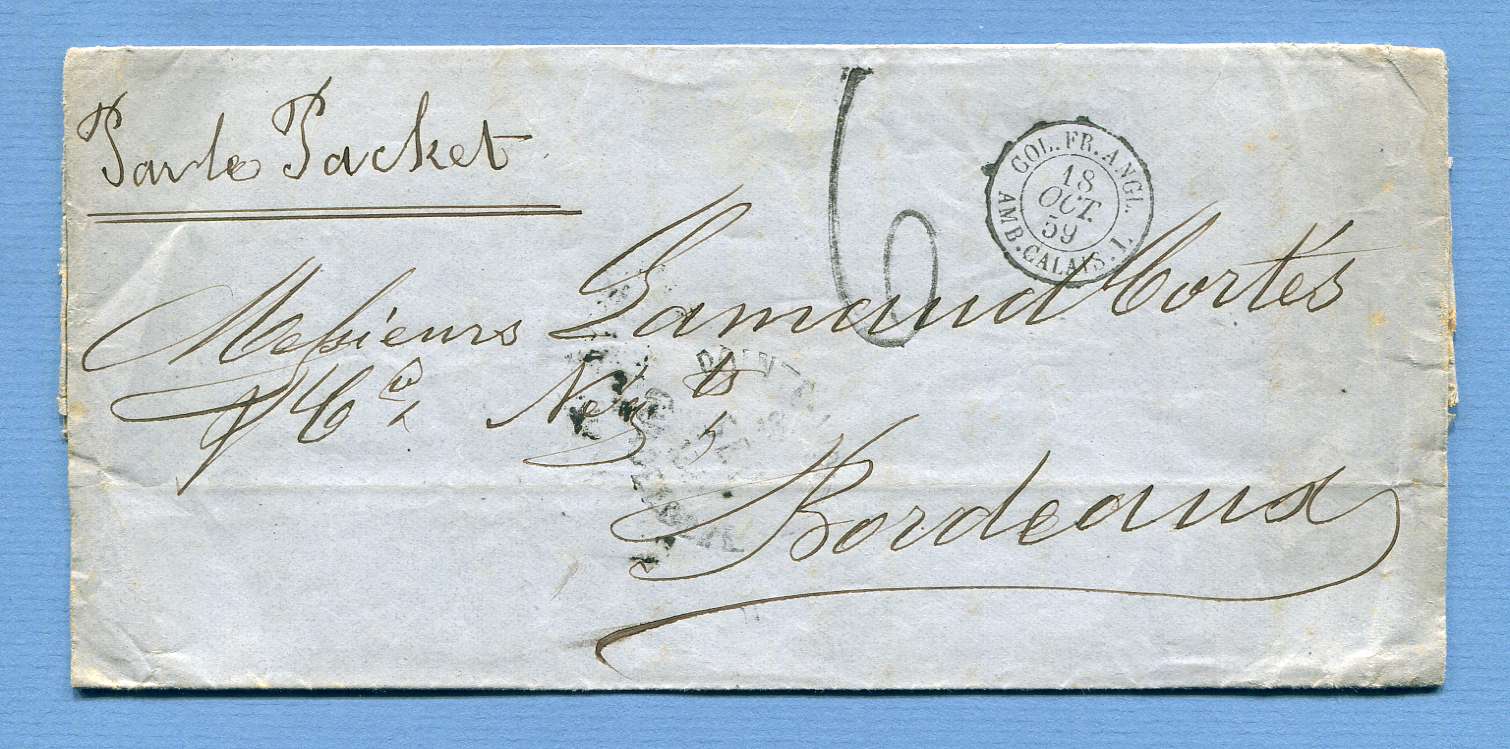 Par le Packet
6
COL. FR. ANGL.
18
OCT.
59
AMB. CALAIS. 1.
Messieurs Lamaud Cortès
& Cie Negts
POINTE
Bordeaux